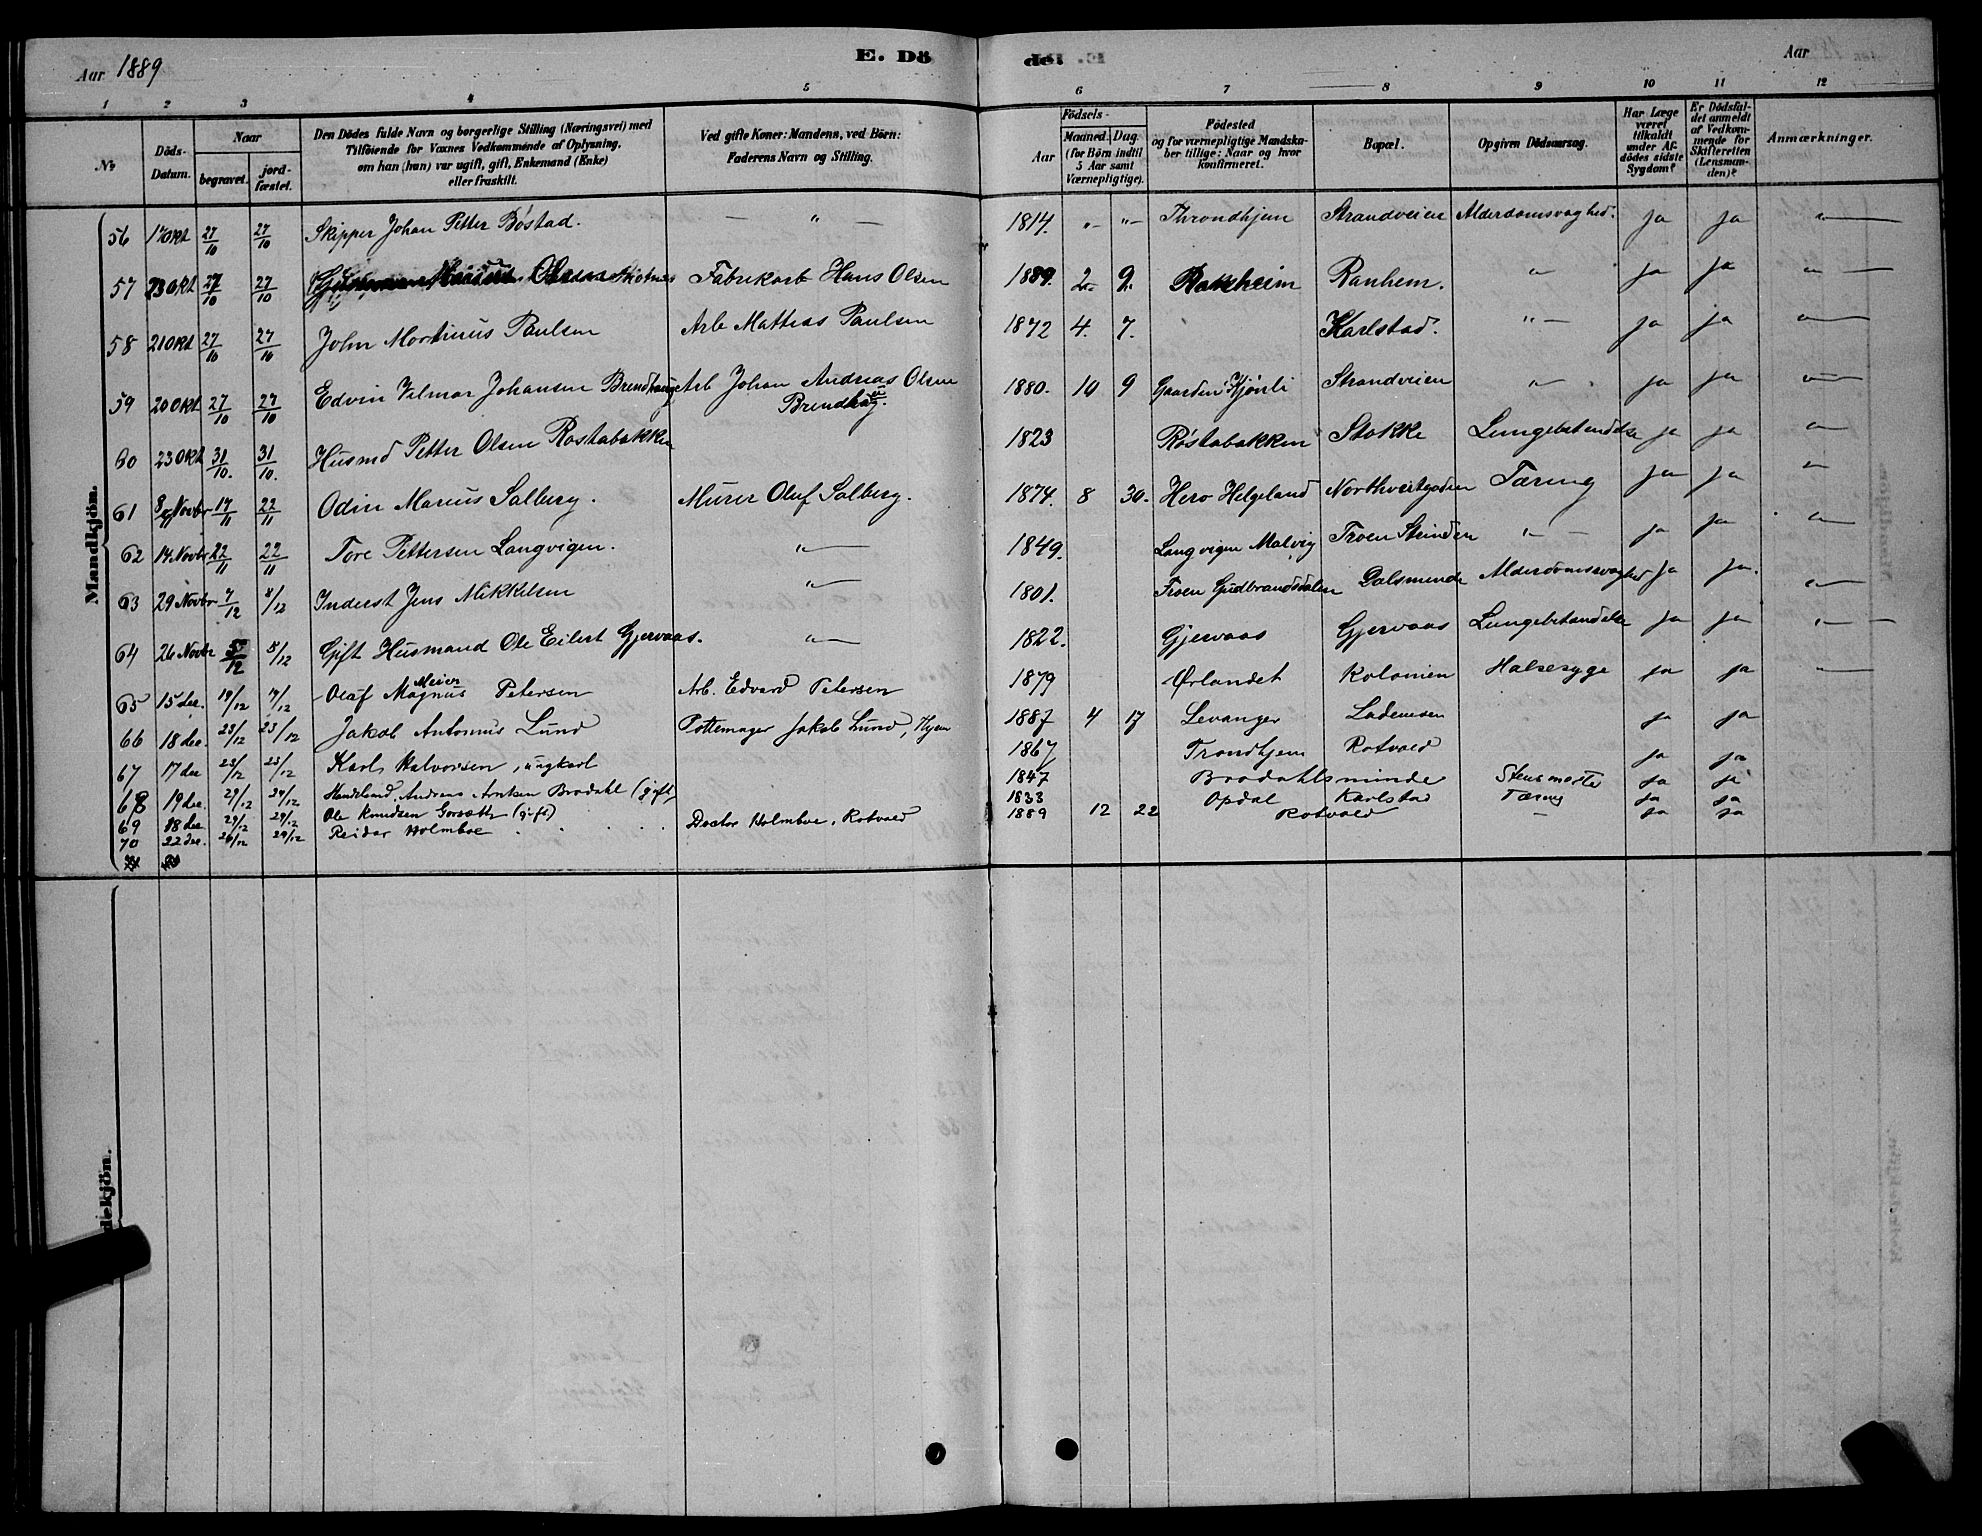 Aar 1889
E. Dö
de. E.
Aar
1 2 3 4 5 6 7 8 9 10 11 12
No
Döds-Datum.
Naar
begravet.
jordfæstet.
Den Dödes fulde Navn og borgerlige Stilling (Næringsvei) med
Tilföiende for Voxnes Vedkommende af Oplysning,
om han (hun) var ugift, gift, Enkemand (Enke)
eller fraskilt.
Ved gifte Koner: Mandens, ved Börn:
Faderens Navn og Stilling.
Födsels-
Aar
Maaned. Dag.
(for Börn indtil
5 Aar samt
Værnepligtige).
Födested
og for værnepligtige Mandska-
ber tillige: Naar og hvor
konfirmeret.
Bopæl.
Opgiven Dödsaarsag.
Har Læge
været
tilkaldt
under Af-
dödes sidste
Sygdom?
Er Dödsfal-
det anmeldt
af Vedkom-
mende for
Skifteretten
(Lensman-
den)?
Anmærkninger.
Mandkjön.
56 17 Okt 27/10 27/10 Skipper Johan Petter Böstad. — " — 1814. "— "— Throndhjem Strandveien Alderdomsvaghed. Ja Ja "—
57 23 Okt 27/10 27/10 Olsen Fabrikarb Hans Olsen 1889. 2. 9. Ranheim Ranhem. " Ja Ja "—
58 21 Okt 27/10 27/10 John Martinus Paulsen Arb Mattias Paulsen 1872 4. 7. Karlstad. "— Ja Ja "—
59 20 Okt 27/10 27/10 Edvin Vilmar Johansen Brendhaug Arb Johan Andreas Olsen
Brendhaug. 1880. 10 9 Gaarden Kjönli Strandveien " Ja Ja "—
60 23 Okt 31/10. 31/10. Husmd Petter Olsen Rostabakken 1823 Röstabakken Stokke Lungebetendelse Ja Ja "—
61 8 Novbr 17/11 22/11 Odin Marius Salberg. Murer Oluf Salberg. 1874. 8 30. Herø Helgeland Tæring Ja Ja "
62 14 Novbr 22/11 22/11 Tore Pettersen Langvigen. "— 1849. Langvigen Malvig Troen Strinden "— Ja Ja "—
63 29 Novbr 7/12 8/12 Inderst Jens Mikkelsen "— 1801. Troen Gudbrandsdalen Dalsminde Alderdomsvaghed Ja Ja. "—
64 26 Novbr 8/12 Gift Husmand Ole Eilert Gjervaas. "— 1822. Gjervaas Gjervaas Lungebetændelse Ja Ja "—
65 15 dec. 19/12 19/12 Olaf Magnus Meier Petersen Arb. Edvard Petersen 1879 Ørlandet Kolonien Halsesyge ja ja —
66 18 dec. 23/12 23/12 Jakob Antonius Lund Pottemager Jakob Lund, Thjem 1887 4 17 Levanger Lademoen ja ja
67 17 dec 23/12 23/12 Karl Halvorsen, ungkarl 1867 Trondhjem Rotvold ja ja
68 19 dec. 29/12 29/12 Handelsmd. Andreas Arntsen Brodahl (gift) 1847 Brodahlsminde ja ja
69 18 dec 29/12 29/12 Ole Knudsen Gorseth (gift) 1833 Opdal Karlstad Tæring ja ja
70 22 dec. 26/12 29/12 Reidar Holmboe . . . . Doctor Holmboe, Rotvold 1889 12 22 Rotvold — ja ja
dekjön.